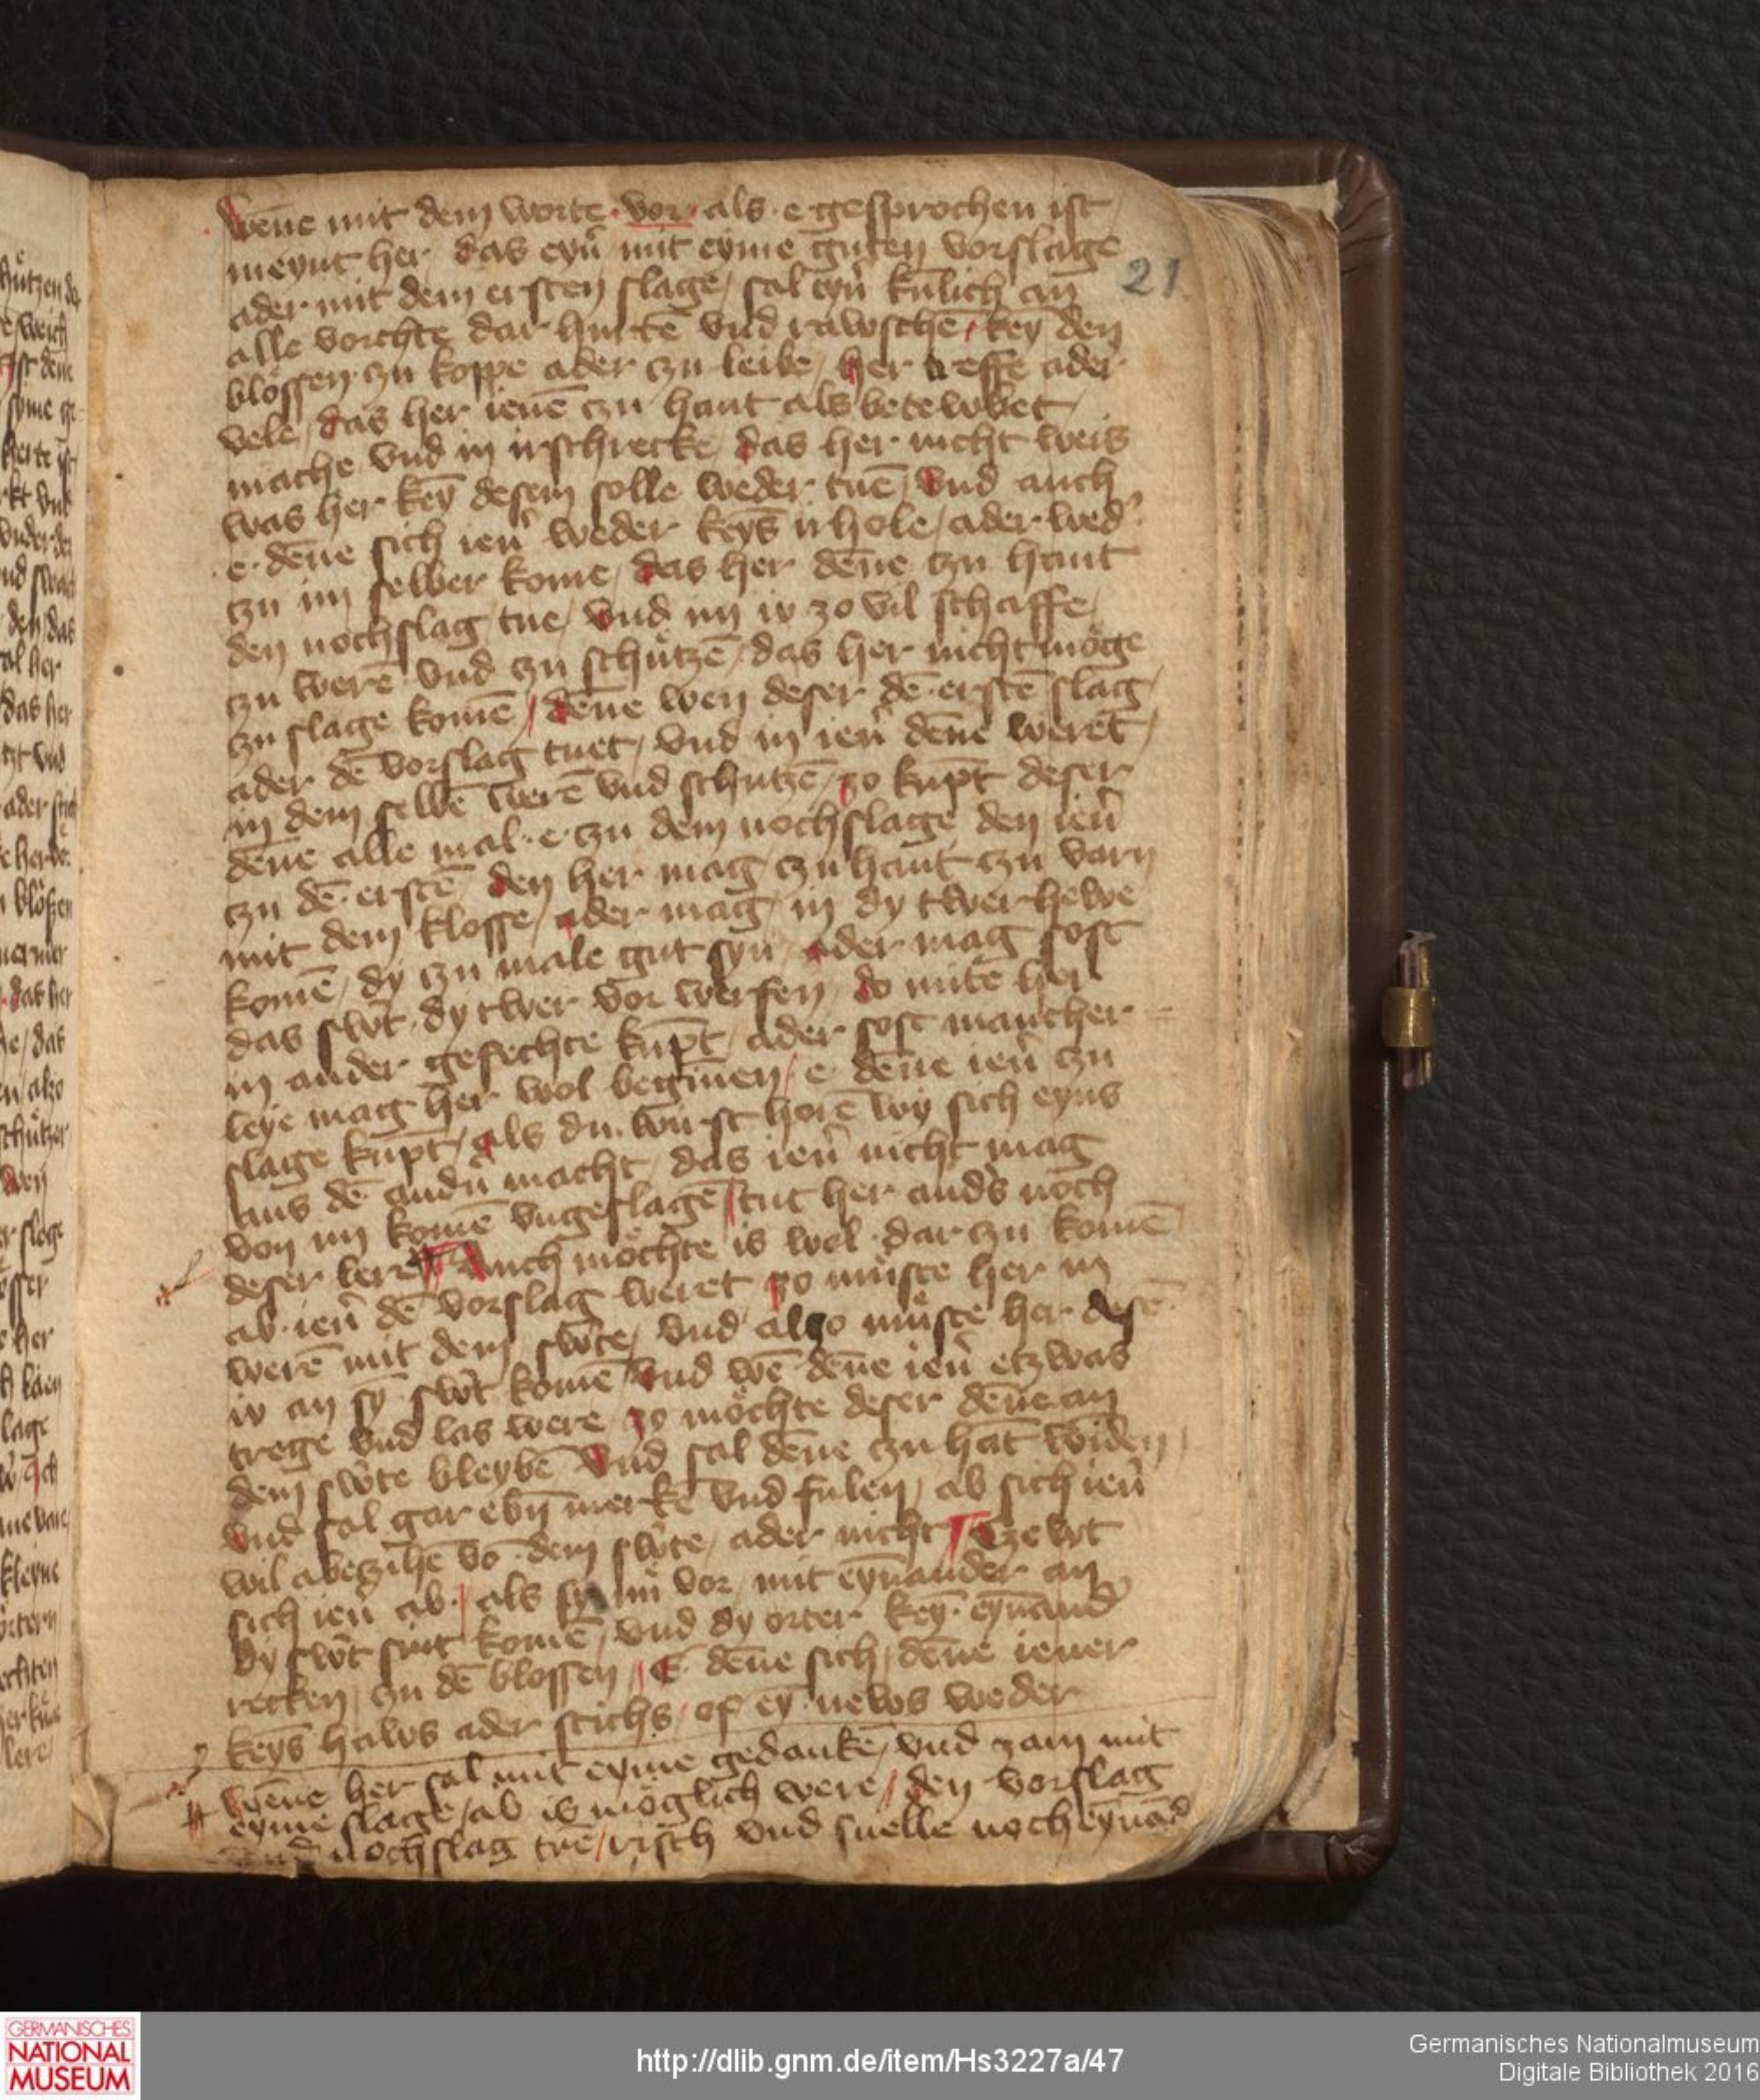 wen̄e mit dem worte · vor · als · e gesprochen ist
meynt her / das eyn̑ mit eyme guten vorslage
21
ader mit dem ersten slage / sal eyn̑ kunlich an
alle vorchte dar hurte͞ vnd rawsche͞ / key͞ den
blössen · czu koppe ader czu leibe / her treffe ader
vele / das her iene͞ czu hant als betewbet
mache vnd in irschrecke / das her nicht weis
was her key͞ desem solle weder tue͞ / vnd auch
e · den̄e sich ien̑ weder keys̄ irhole / ader wed̑
czu im selber kome / das her den̄e czu hant
den nochslag tue / vnd im io zo vil schaffe /
zu were͞ vnd czu schutze͞ / das her nicht möge
zu slage kome͞ / den̄e wen deser de͞ · erste͞ slag /
ader de͞ vorslag tuet / vnd in ien̑ den̄e weret /
in dem selbe͞ were͞ vnd schutze͞ / zo kūpt deser
den̄e alle mal · e · czu dem nochslage den ien̑
czu de͞ · erste͞ / den her mag czu hant czu varn
mit dem klosse / ader mag / in dy twerhewe
kome͞ / dy czu male gut syn̑ / ader mag sost
das sw̑t · dy twer vor werfen / do mite her
in ander gefechte kūpt / ader sost mancher -
leye mag her wol begin̄en / e · den̄e ien̑ zu
slage kūpt / als du · wirst hore͞ wy sich eyns
aus de͞ andn̑ macht / das ien̑ nicht mag
von im kome͞ vngeslage͞ / tut her and̑s noch
deser lere / Auch möchte is wol · dar zu kome͞
ab · ien̑ de͞ vorslag weret / zo müste her in
were͞ mit dem sw̑te / vnd also müste her dese͞ ·
io an sy͞ sw̑t kome͞ / vnd we͞ den̄e ien̑ etzwas
trege vnd las were / zo möchte deser den̄e an
dem sw̑te bleybe͞ / vnd sal den̄e czu ha͞t winden /
vnd sal gar ebn̄ merke͞ vnd fulen / ab sich ien̑
wil abeczihe͞ vo͞ · dem sw̑te / ader nicht / Czewt
sich ien̑ ab · / als sy nu͞ vor / mit eyn̄ander an
dy sw̑t sint kome͞ / vnd dy örter key͞ · eyn̄and̑
recken / zu de͞ blossen / E · den̄e sich / den̄e iener
keys̄ haws ader stichs / of ey͞ · news weder
wen̄e her sal mit eyme gedanke͞ / vnd zam mit
eyme slage / ab is möglich were / den vorslag
nochslag tue͞ / risch vnd snelle noch eyn̄and̑
GERMANISCHES
NATIONAL
MUSEUM
http://dlib.gnm.de/item/Hs3227a/47
Germanisches Nationalmuseum
Digitale Bibliothek 2016